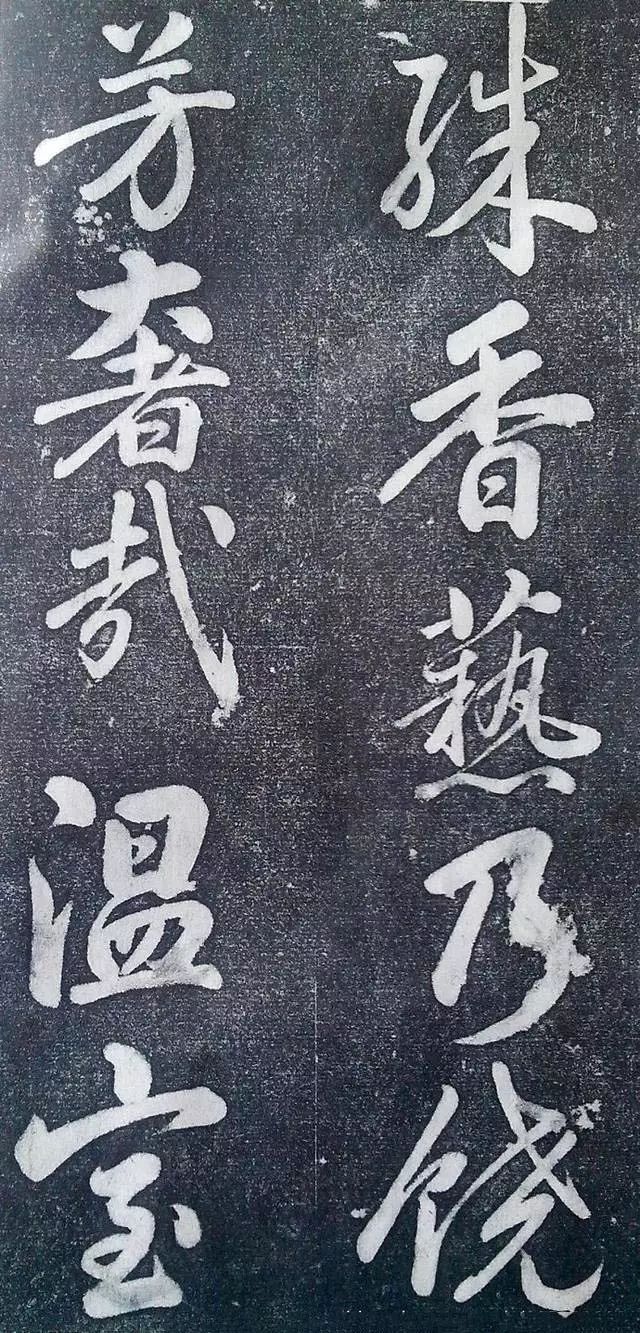 殊香爇乃饒
芳奢哉温室